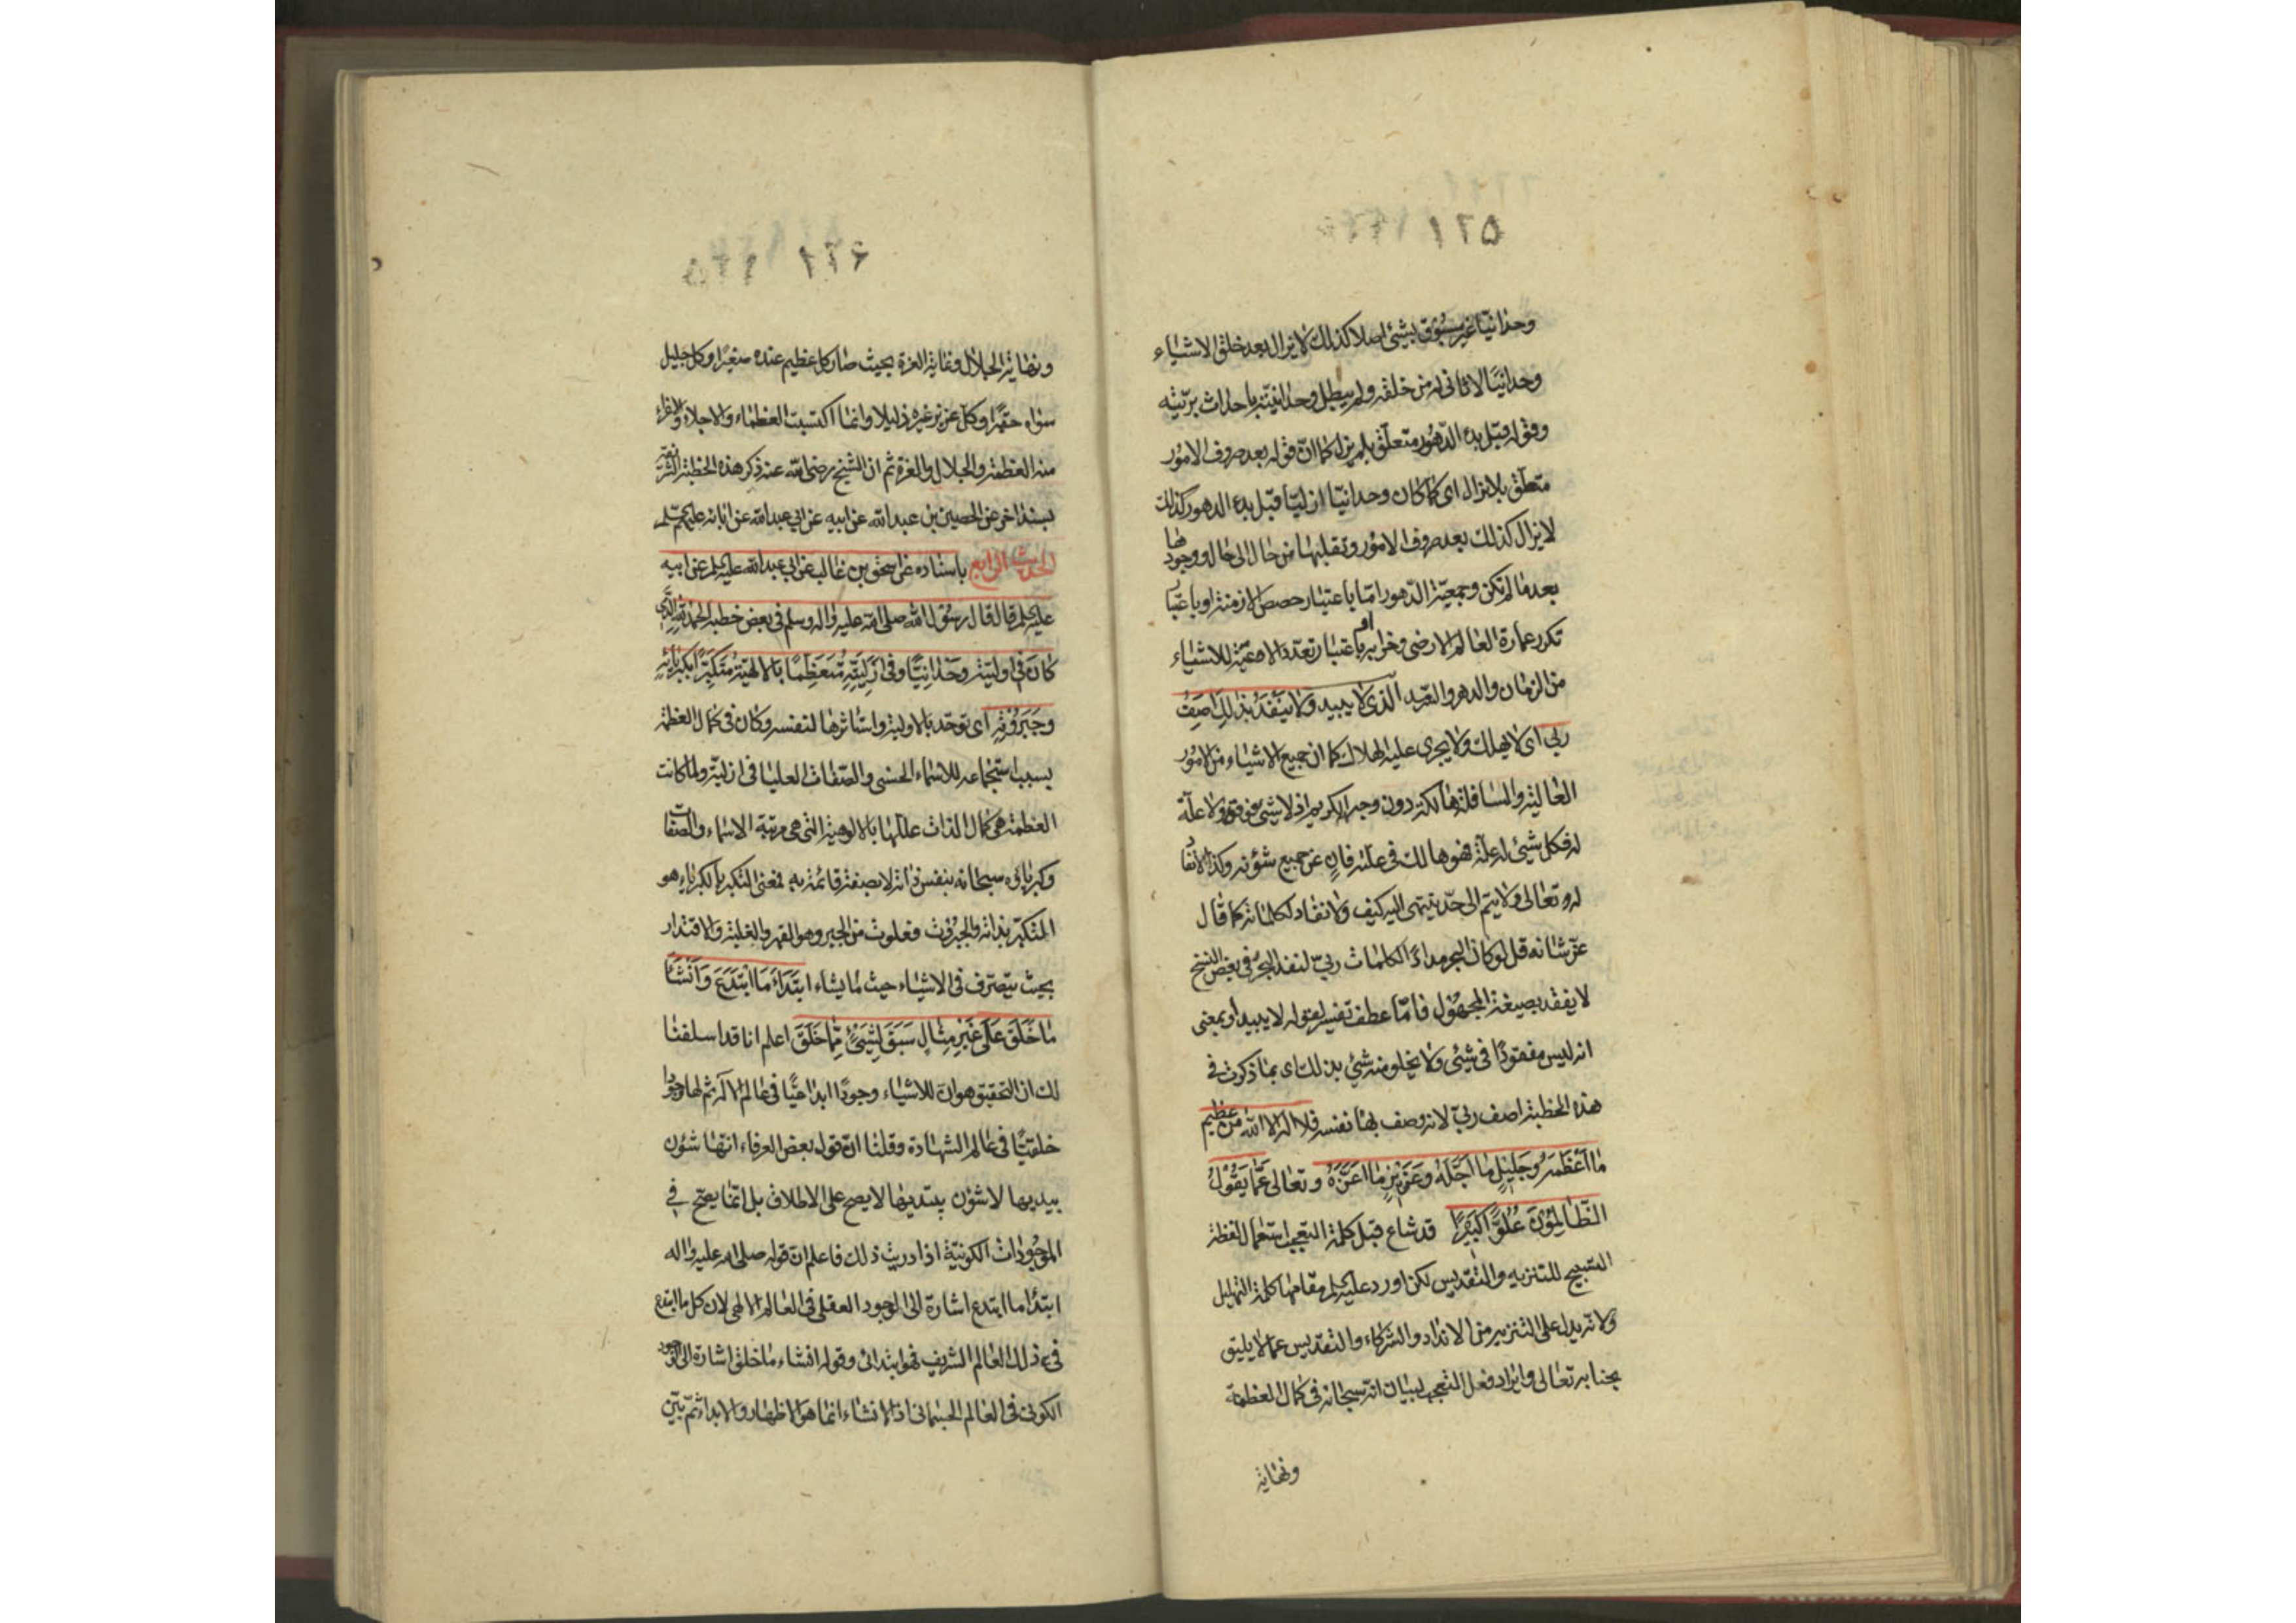 ١٢٥
وحدانيّا غير مسبوق بشيئ اصلا كذلك لا يزال بعد خلق الاشياء
وحدانيّا لا ثاني له من خلقه ولم يبطل وحدانيّته باحداث بريّته
وقوله قبل بدء الدّهور متعلّق بلم يزل كما انّ قوله بعد صروف الامور
متعلّق بلا يزال اى كما كان وحدانيّا ازليّا قبل بدء الدهور كذلك
لا يزال كذلك بعد صروف الامور وتقلبها من حال الى حال ووجودها
بعد ما لم تكن وجمعيّة الدّهور امّا باعتبار حصص الازمنة او باعتبار
تكرر عمارة العالم الارضى وخرابه او باعتبار تعدّد الاوعية للاشياء
من الزمان والدهر والسّرمد الّذى لا يبيد ولا ينفد بذلك اصف
ربّي اى لا يهلك ولا يجرى عليه الهلاك كما ان جميع الاشياء من الامور
العالية والسافلة هالكة دون وجهه الكريم اذ لا شيئ فوقه ولا علّة
له فكل شيئ له علّة فهو هالك في علّته فان عن جميع شؤنه وكذا لا نفاد
له تعالى ولا يتم الى حدّ ينتهى اليه كيف ولا نفاد لكلماته كما قال
عزّ شانه قل لو كان البحر مدادًا لكلمات ربّي لنفد البحر وفي بعض النسخ
لا يفقد بصيغة المجهول فامّا عطف تفسير لقوله لا يبيد او بمعنى
انه ليس مفقودًا في شيئ ولا يخلو منه شيئ بذلك اى بما ذكرت في
هذه الخطبة اصف ربّي لانه وصف بها نفسه فلا اله الا الله من عظيم
ما اَعْظَمَهُ وجَليلٍ ما اَجَلَّهُ وعَزيزٍ ما اَعَزَّهُ وتعالى عَمّا يَقُوْلُ
الظّالِمُوْنَ عُلُوًّا كَبيرًا قد شاع قبل كلمة التعجب استعمال لفظة
التسبيح للتنزيه والتقديس لكن اورد عليه السلم مقامها كلمة التهليل
ولانه يدل على التنزيه من الانداد والشركاء والتقديس عما لا يليق
بجنابه تعالى وايراد فعل التعجب لبيان انه سبحانه في كمال العظمة
ونهاية
١٢۶
ونهاية الجلال وغاية العزة بحيث صار كل عظيم عنده صغيرًا وكل جليل
سواه حقيرًا وكل عزيز غيره ذليلا وانما اكتسبت العظماء والاجلاء والاعزاء
منه العظمة والجلال والعزة ثم ان الشيخ رضى الله عنه ذكر هذه الخطبة الشريفة
بسند اخر عن الحصين بن عبد الله عن ابيه عن ابي عبد الله عن ابائه عليهم السلم
الحديث الرابع باسناده عن اسحق بن غالب عن ابي عبد الله عليه السلم عن ابيه
عليه السلم قال قال رسول الله صلى الله عليه واله وسلم في بعض خطبه الحمد لله الّذى
كانَ في اوليّته وَحْدانِيًّا وفي اَزَلِيَّتِهِ مُتَعَظِّمًا بالالهيّة مُتَكَبِّرًا بكبريائِهِ
وجَبَرُوْتِهِ اى توحّد بالاولية واستاثرها لنفسه وكان في كمال العظمة
بسبب استجماعه للاسماء الحسنى والصّفات العليا في ازليته ولما كانت
العظمة هى كمال الذات عللها بالالوهية التي هى مرتبة الاسماء والصّفات
وكبرياؤه سبحانه بنفس ذاته لا بصفة قائمة به فمعنى التكبر بالكبرياء هو
المتكبّر بذاته والجبروت فعلوت من الجبر وهو القهر والغلبة والاقتدار
بحيث يتصّرف في الاشياء حيث ما يشاء ابْتَدَاءَ مَا ابْتَدَعَ وَاَنْشَأَ
مٰا خَلَقَ عَلٰى غَيْرِ مِثالٍ سَبَقَ لِشَيْئٍ مِمّا خَلَقَ اعلم انا قد اسلفنا
لك ان التحقيق هو ان للاشياء وجودًا ابداعيًّا في عالم الاله ثم لها وجودا
خلقيّا في عالم الشهادة وقلنا انّ قول بعض العرفاء انها شؤن
يبديها لا شؤن يبتديها لا يصح على الاطلاق بل انّما يصحّ في
الموجودات الكونيّة اذا دريت ذلك فاعلم ان قوله صلى الله عليه واله
ابتدأ ما ابتدع اشارة الى الوجود العقلى في العالم الالهى لان كل ما ابتدع
في ذلك العالم الشريف فهو ابتدائى وقوله انشاء ما خلق اشارة الى الوجود
الكوني في العالم الجسماني اذ الانشاء انما هو الاظهار والابداء ثم بيّن